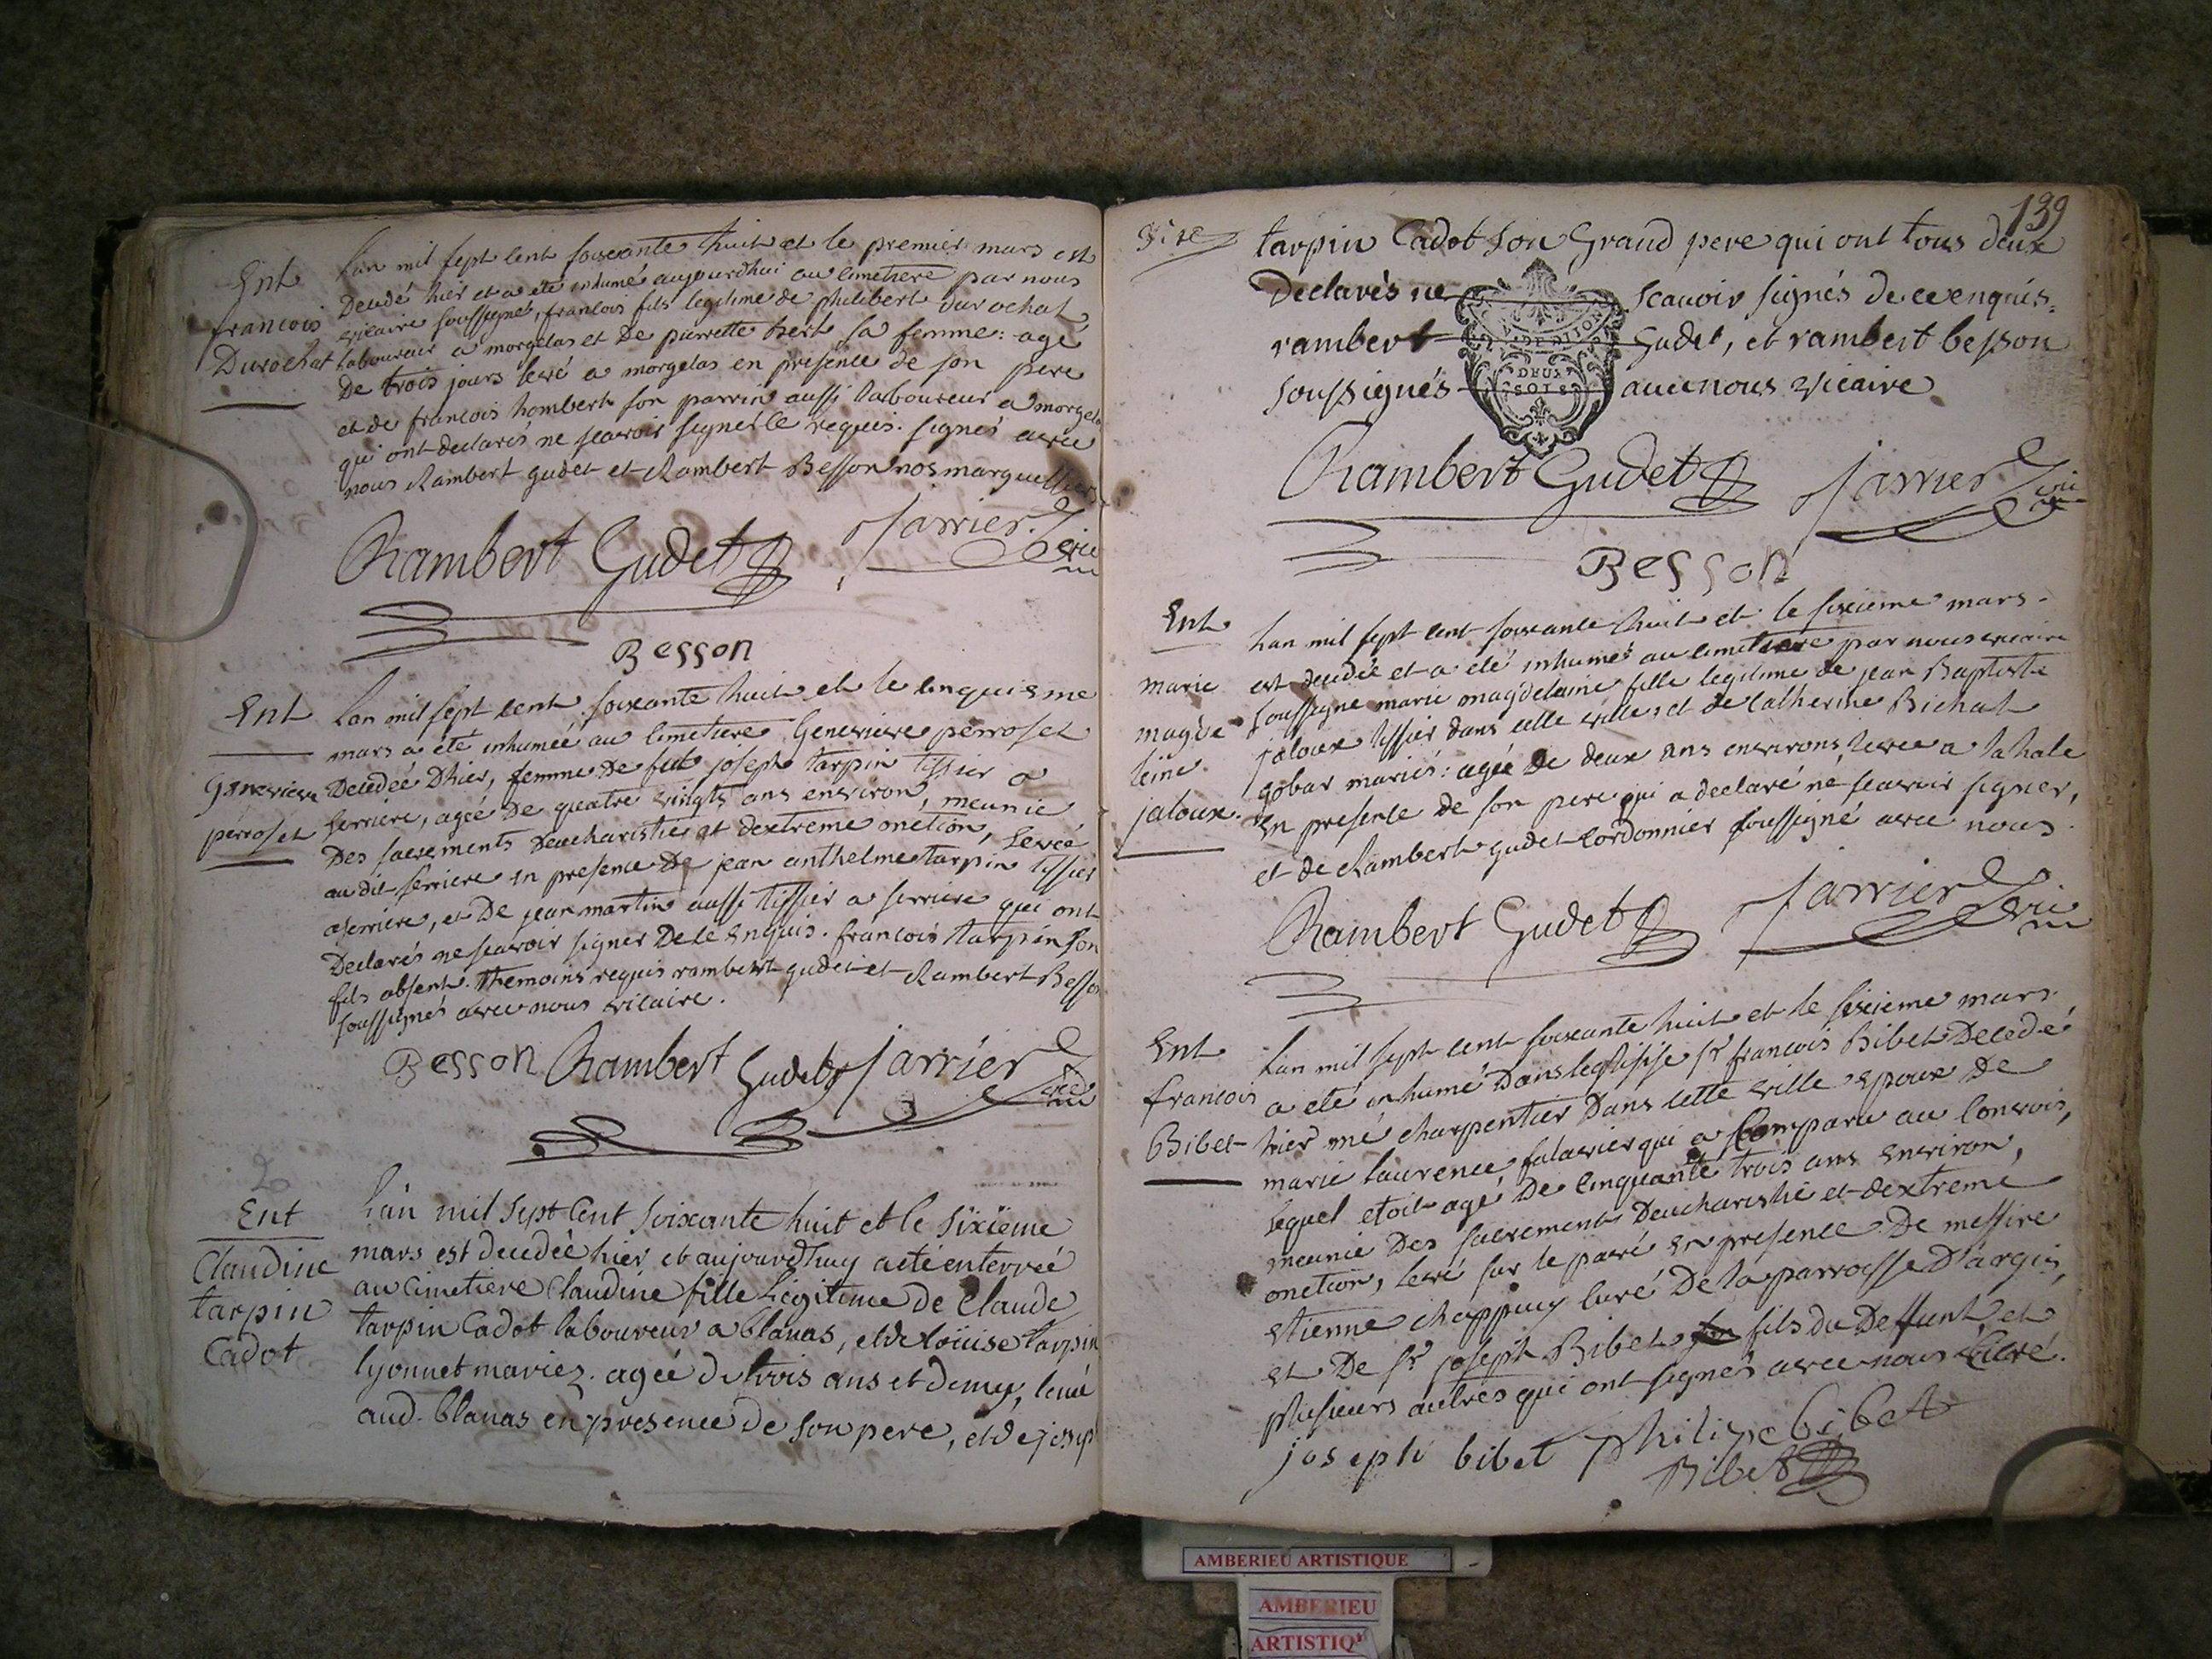 Ent
francois
Durochat
Lan mil sept cent soixante huit et le premier mars est
Decedé hier et a eté inhumé aujourdhui au cimetiere par nous
vicaire soussigné, francois fils legitime de philibert durochat
laboureur a morgelas et De pierrette hert sa femme: agé
De trois jours levé a morgelas en presence de son pere
et de francois hombert son parrin aussi laboureur a morgelas
qui ont declarés ne scavoir signer le requis. signés avec
nous Rambert gudet et Rambert Besson nos marguilliers
Rambert Gudet Jarrier vic
Besson
Ent
Genevieve
perroset
Lan mil sept cent soixante huit et le cinquieme
mars a eté inhumée au cimetiere Genevieve perroset
Decedée Dhier, femme De feu joseph tarpin tissier a
serriere, agée De quatre vingts ans environ, meunie
Des sacrements Deucharistie et dextreme onction, levée
au dit serriere en presence De jean anthelme tarpin tissier
a serriere, et De jean martin aussi tissier a serriere qui ont
Declarés ne scavoir signer De ce enquis. francois tarpin son
fils absent. themoins requis rambert gudet et Rambert Besson
soussignés avec nous vicaire.
Besson Rambert Gudet Jarrier vic
Ent
Claudine
tarpin
Cadot
Lán mil sept Cent soixante huit et le sixïeme
mars est decedée hier et aujourdhuy a eté enterreé
au Cimetiere Claudine fille légitime de Claude
tarpin Cadot laboureur a blanas, et de loüise tarpin
lyonnet mariez. agée de trois ans et demy, leveé
aud. blanas en presence de son pere, et de joseph
139
tarpin Cadot son Grand pere qui ont tous deux
Declarés ne scavoir signés de ce enquis.
rambert Gudet, et rambert besson
soussignés avec nous vicaire
DEUX
SOLS
Rambert Gudet Jarrier vic
Besson
Ent
marie
magde
leine
jaloux.
Lan mil sept cent soixante huit et le sixieme mars
est decedée et a eté inhumée au cimetiere par nous vicaire
soussigne marie magdelaine fille legitime de jean Baptiste
jaloux tissier dans cette ville, et de Catherine Bichat
gobar mariés: agée de deux ans environs, levée a la hale
En presence de son pere qui a declaré ne scavoir signer,
et de Rambert gudet cordonnier soussigné avec nous
Rambert Gudet Jarrier vic
Ent
francois
Bibet
Lan mil sept cent soixante huit et le sixieme mars
a eté inhumé Dans leglise sr francois Bibet Decedé
hier me charpentier Dans cette ville epoux De
marie laurence falavier qui a Comparu au Convois,
lequel etoit agé De cinquante trois ans environ,
meunie Des sacrements Deucharistie et dextreme
onction, levé sur le pavé en presence De messire
etienne chappuy curé De la parroisse D'argis,
et De sr joseph Bibet fils du Deffunt, et
plusieurs autres qui ont signés avec nous Curé.
joseph bibet philipe bibet
Bibet
AMBERIEU ARTISTIQUE
AMBERIEU
ARTISTIQ